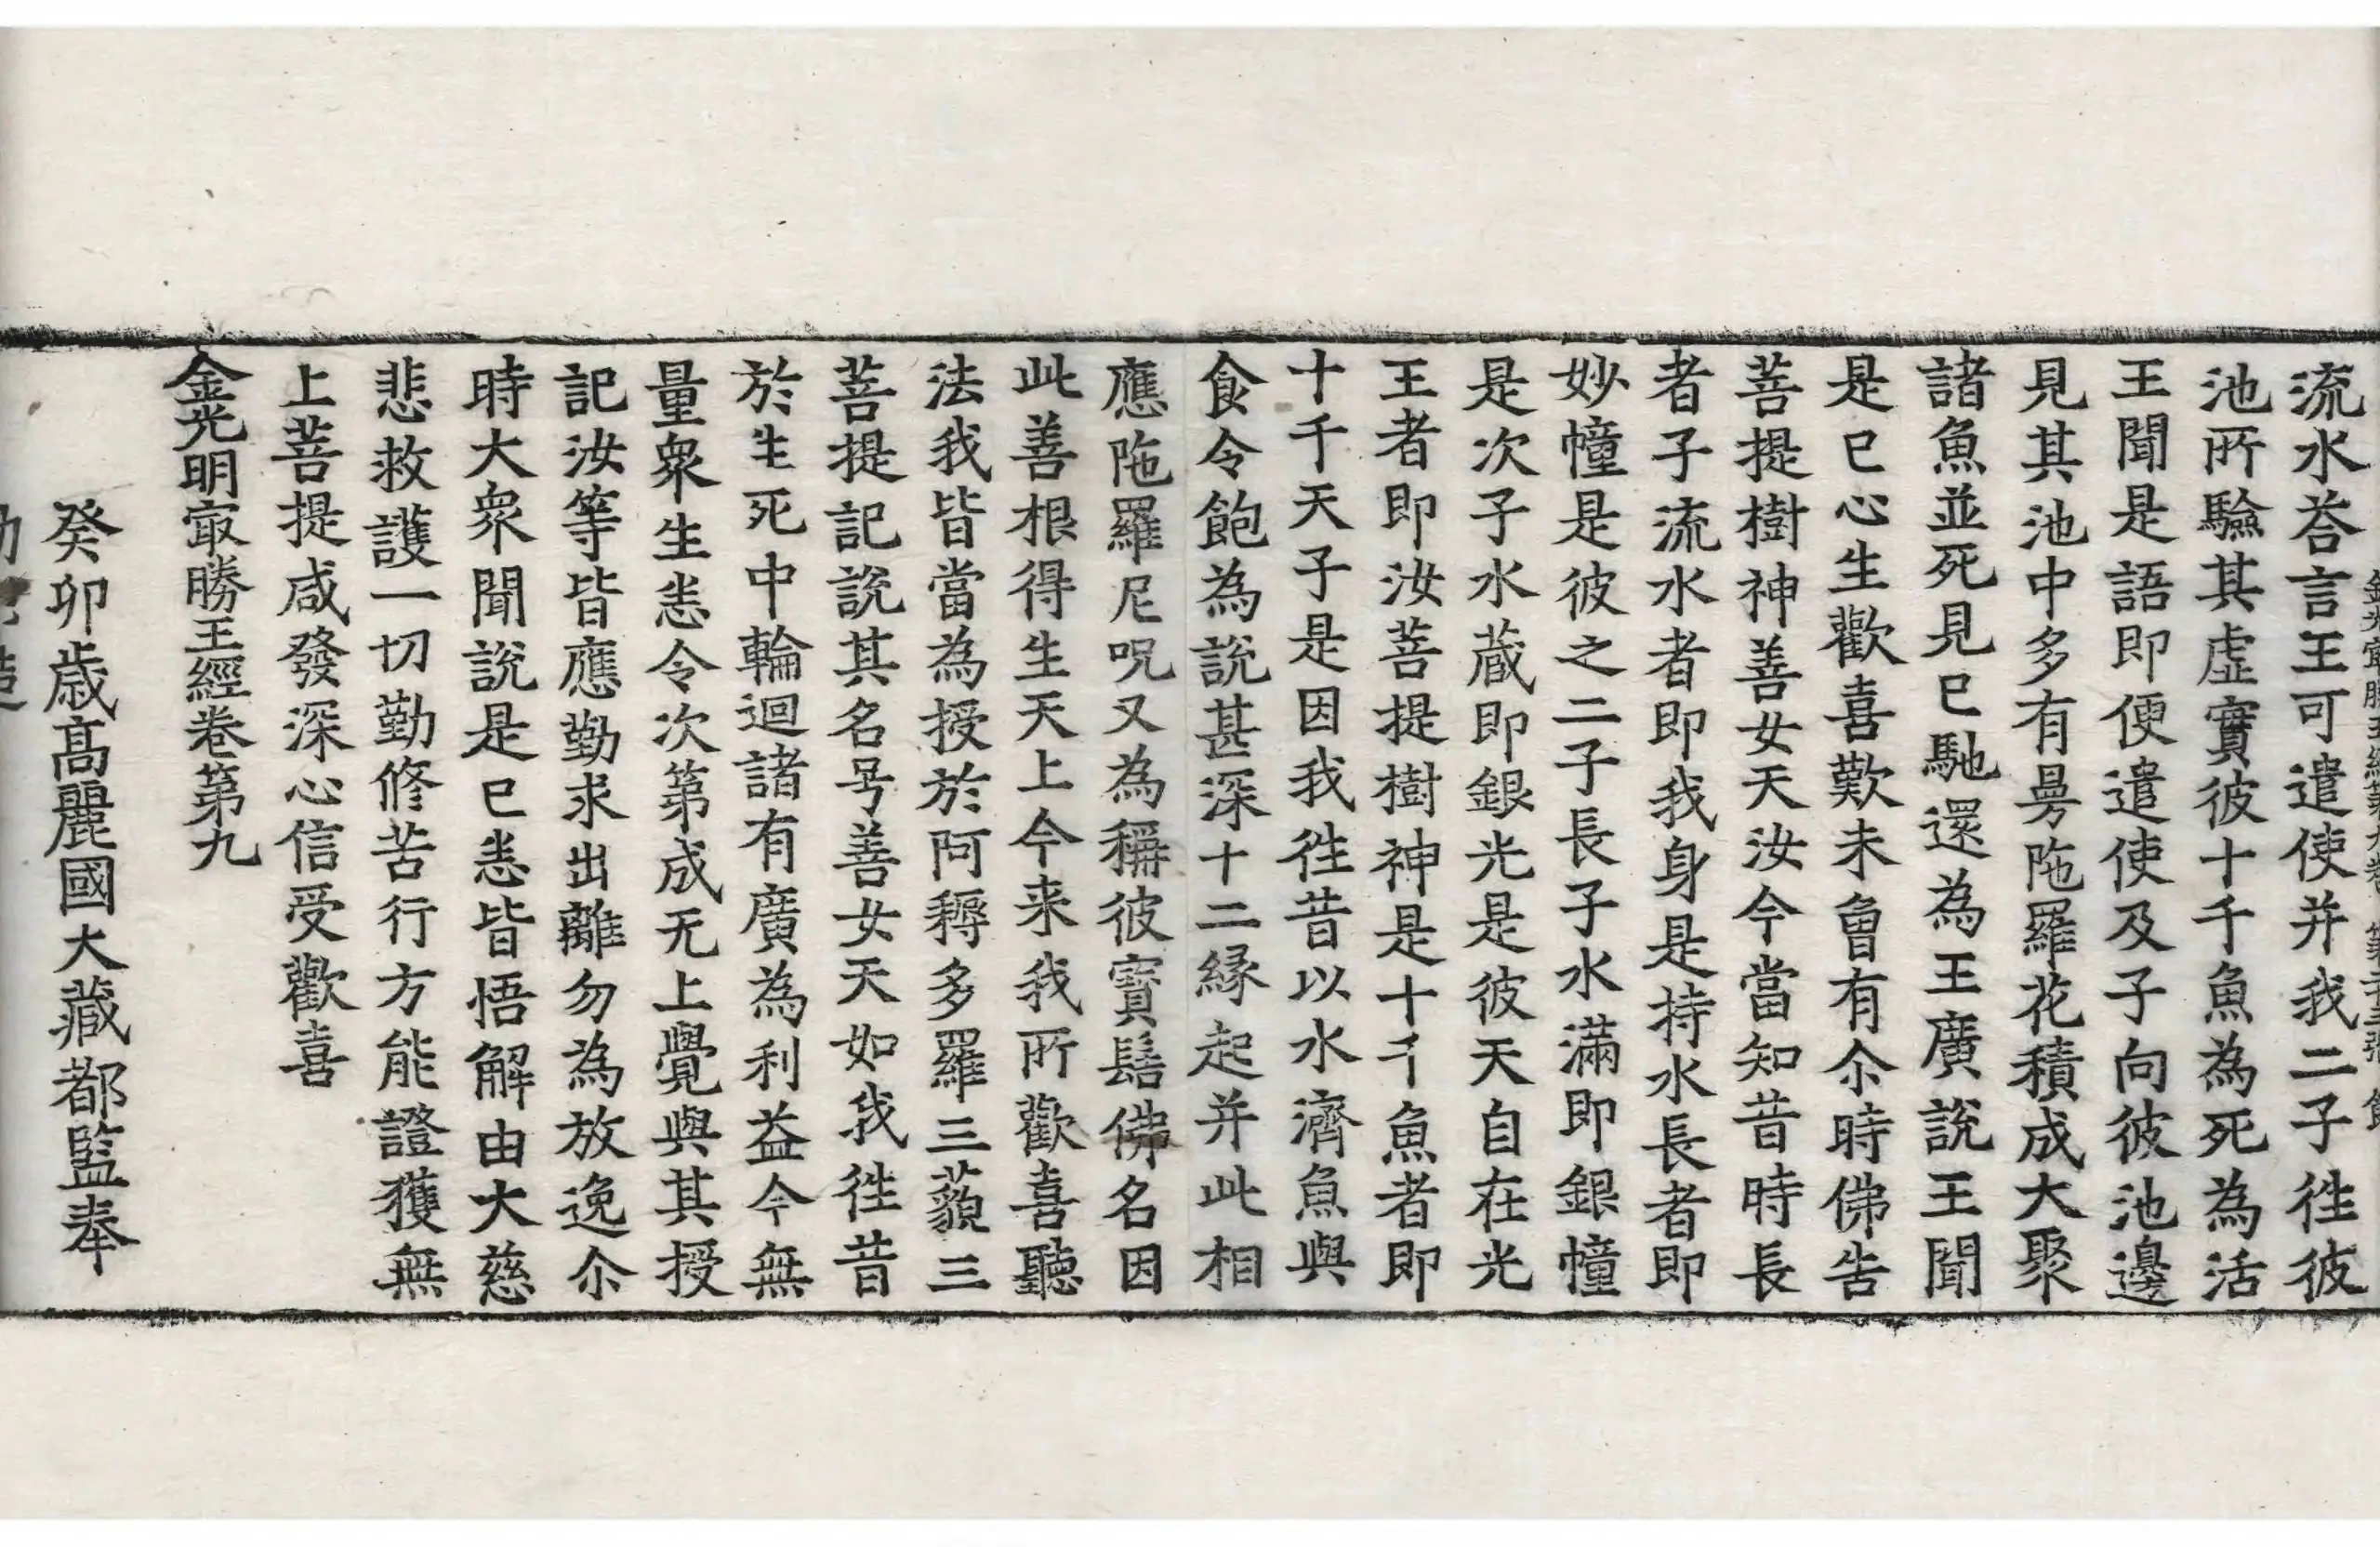 流水荅言王可遣使并我二子徃彼
池所驗其虛實彼十千魚為死為活
王聞是語即便遣使及子向彼池邊
見其池中多有曼陁羅花積成大聚
諸魚並死見已馳還為王廣說王聞
是已心生歡喜歎未曾有尒時佛告
菩提樹神善女天汝今當知昔時長
者子流水者即我身是持水長者即
妙幢是彼之二子長子水滿即銀幢
是次子水蔵即銀光是彼天自在光
王者即汝菩提樹神是十千魚者即
十千天子是因我徃昔以水濟魚與
食令飽為說甚深十二緣起并此相
應陁羅尼呪又為稱彼寶髻佛名因
此善根得生天上今来我所歡喜聽
法我皆當為授於阿耨多羅三藐三
菩提記說其名号善女天如我徃昔
於生死中輪迴諸有廣為利益今無
量衆生悉令次第成无上覺與其授
記汝等皆應勤求出離勿為放逸尒
時大衆聞說是已悉皆悟解由大慈
悲救護一切勤修苦行方能證獲無
上菩提咸發深心信受歡喜
金光明㝡勝王經卷第九
癸卯歳高麗國大藏都監奉